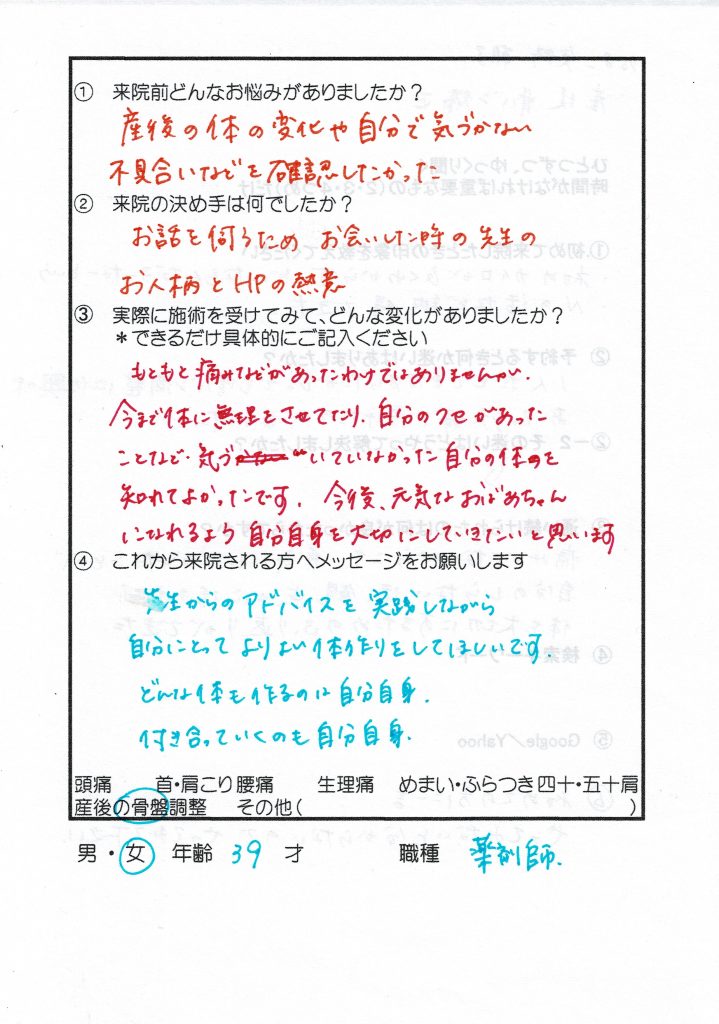 ① 来院前どんなお悩みがありましたか？
産後の体の変化や自分で気づかない
不具合いなどを確認したかった
② 来院の決め手は何でしたか？
お話を伺うため お会いした時の先生の
お人柄とHPの熱意
③ 実際に施術を受けてみて、どんな変化がありましたか？
＊できるだけ具体的にご記入ください
もともと痛みなどがあったわけではありませんが、
今まで体に無理をさせてたり、自分のクセがあった
ことなど、気づいていなかった自分の体のを
知れてよかったです。今後、元気なおばあちゃん
になれるよう自分自身を大切にしていきたいと思います
④ これから来院される方へメッセージをお願いします
先生からのアドバイスを実践しながら
自分にとってよりよい体作りをしてほしいです。
どんな体も作るのは自分自身。
付き合っていくのも自分自身。
頭痛 首・肩こり 腰痛 生理痛 めまい・ふらつき 四十・五十肩
産後の骨盤調整 その他（ ）
男・女 年齢 39 才 職種 薬剤師.